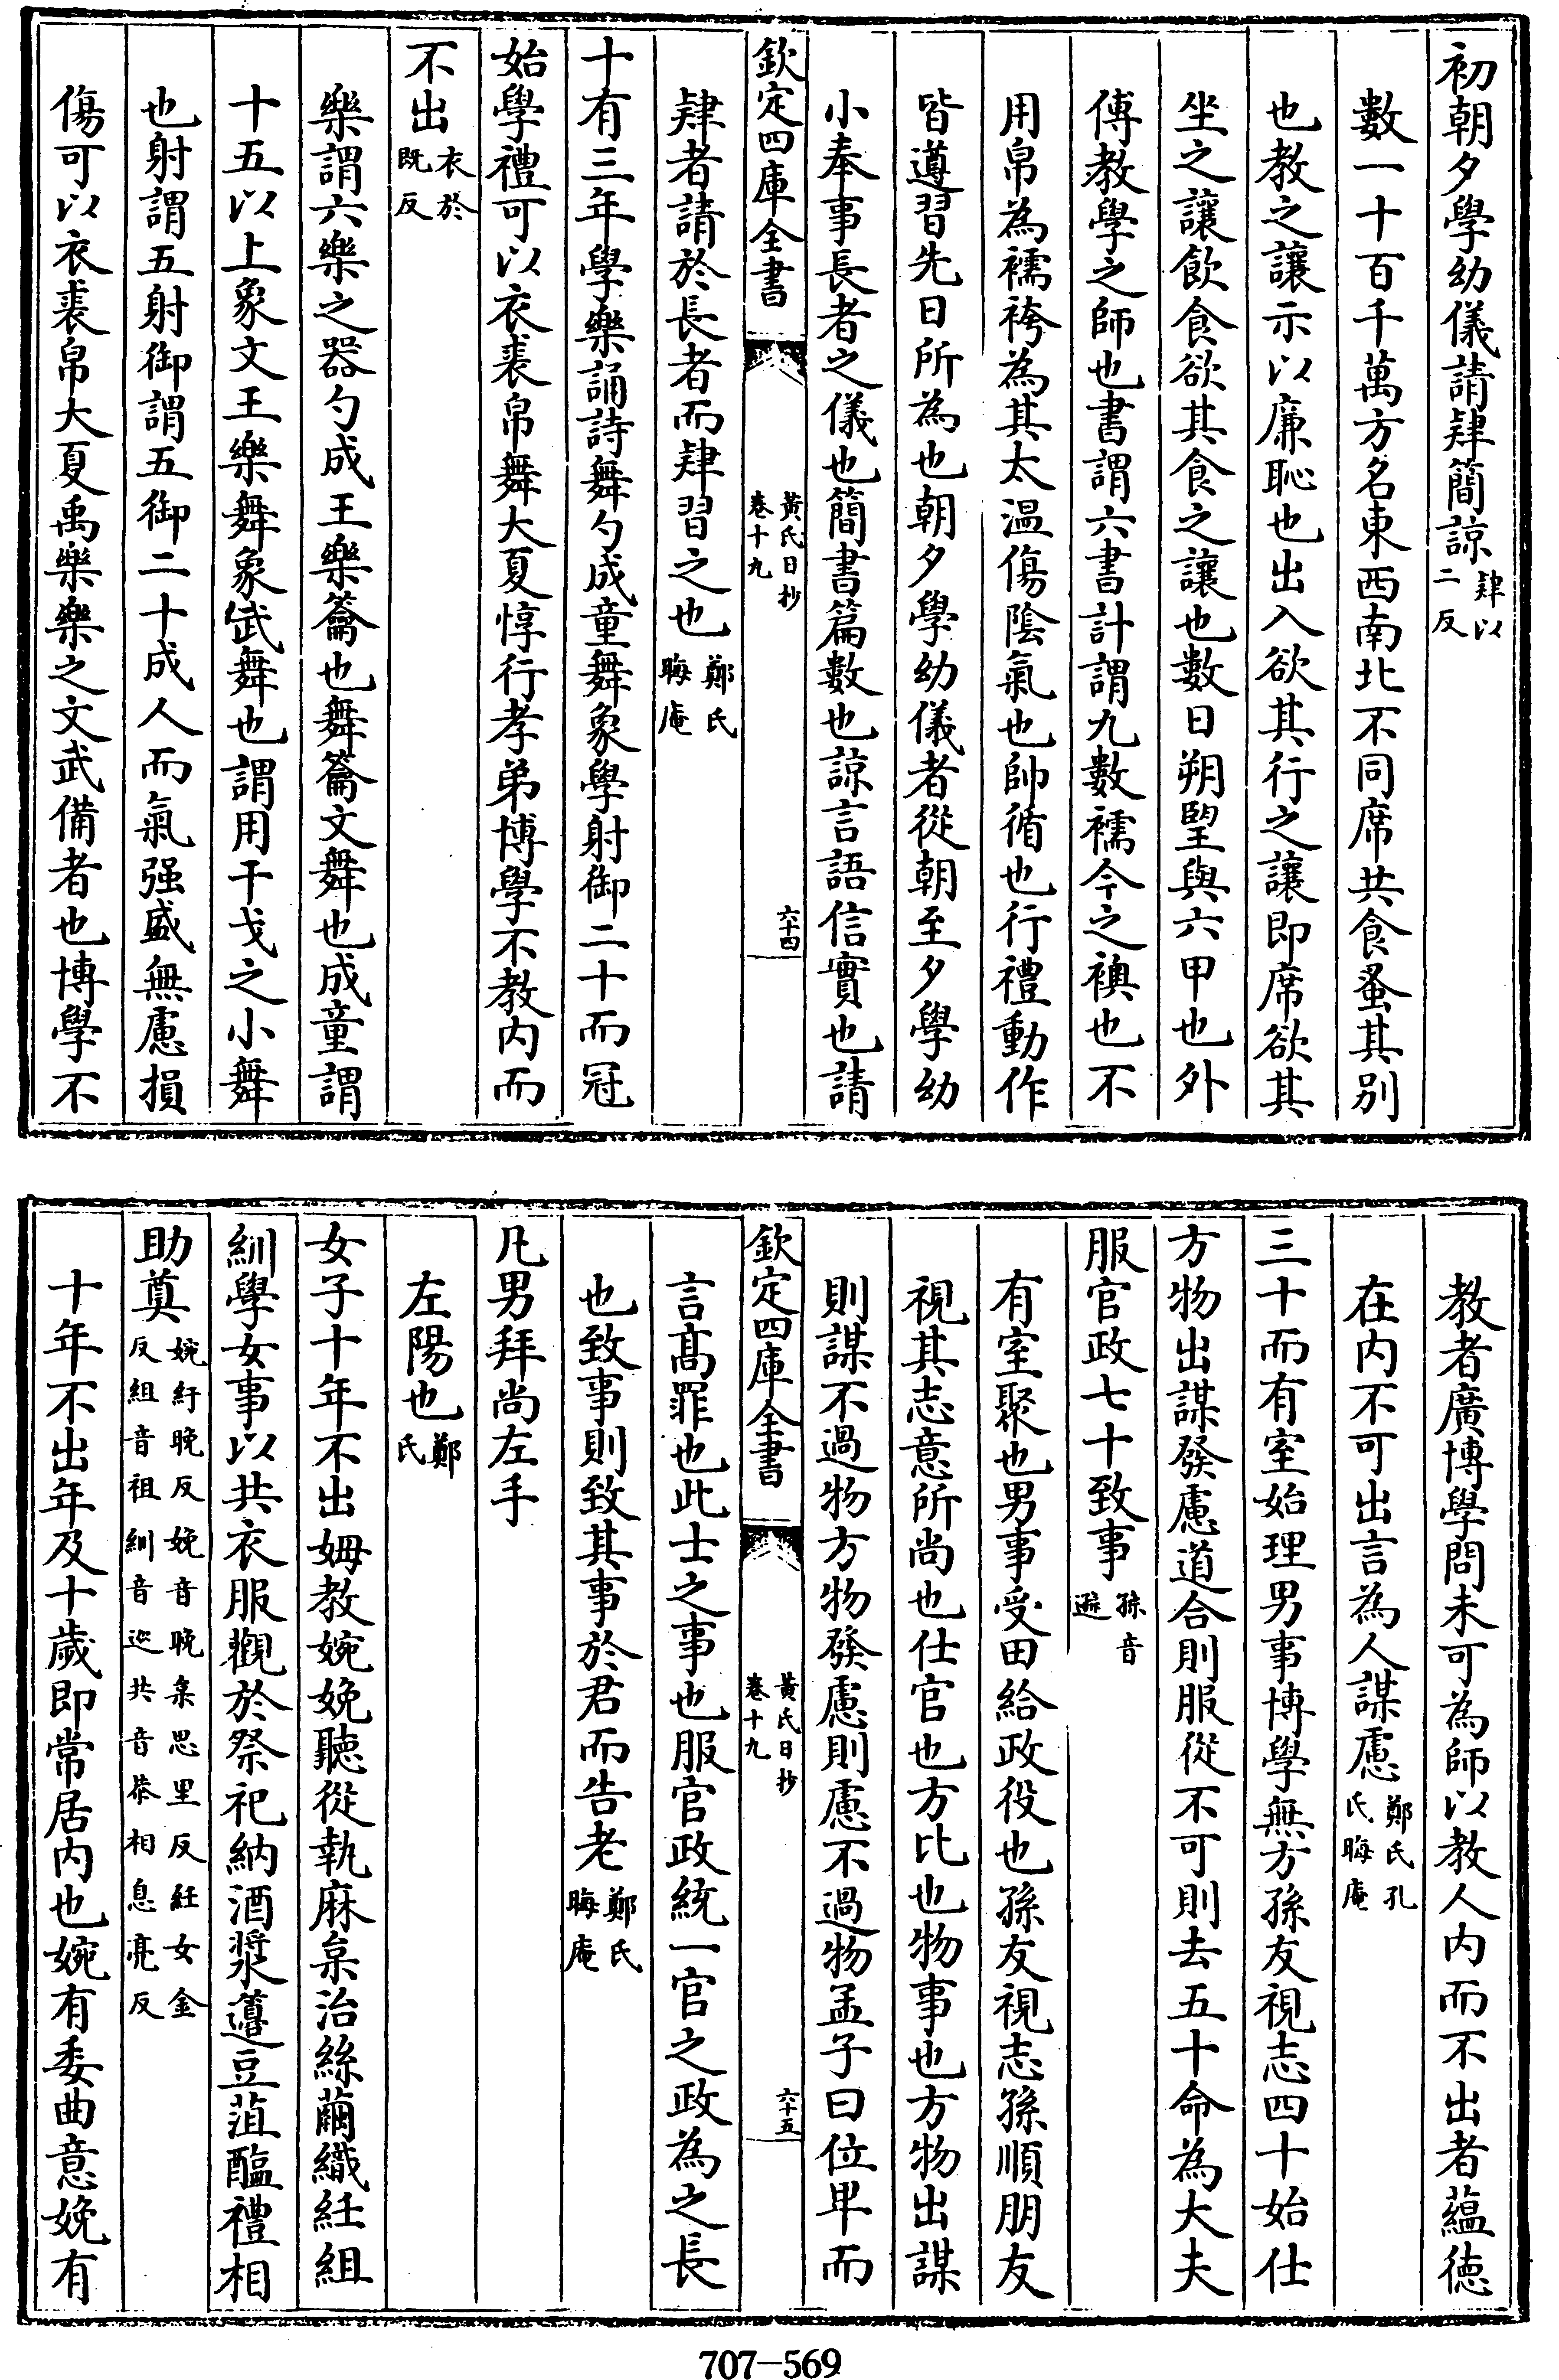 初朝夕學幼儀請肄簡諒肄以二反
數一十百千萬方名東西南北不同席共食蚤其别
也教之讓示以廉恥也出入欲其行之讓即席欲其
坐之讓飲食欲其食之讓也數日朔望與六甲也外
傅教學之師也書謂六書計謂九數襦今之襖也不
用帛為襦袴為其太温傷陰氣也帥循也行禮動作
皆遵習先日所為也朝夕學幼儀者從朝至夕學幼
小奉事長者之儀也簡書篇數也諒言語信實也請
欽定四庫全書
黃氏日抄
卷十九
六十四
肄者請於長者而肄習之也鄭氏晦庵
十有三年學樂誦詩舞勺成童舞象學射御二十而冠
始學禮可以衣裘帛舞大夏惇行孝弟博學不教内而
不出衣於既反
樂謂六樂之器勺成王樂籥也舞籥文舞也成童謂
十五以上象文王樂舞象武舞也謂用干戈之小舞
也射謂五射御謂五御二十成人而氣强盛無慮損
傷可以衣裘帛大夏禹樂樂之文武備者也博學不
教者廣博學問未可為師以教人内而不出者蘊徳
在内不可出言為人謀慮鄭氏孔氏晦庵
三十而有室始理男事博學無方孫友視志四十始仕
方物出謀發慮道合則服從不可則去五十命為大夫
服官政七十致事孫音遜
有室聚也男事受田給政役也孫友視志孫順朋友
視其志意所尚也仕官也方比也物事也方物出謀
則謀不過物方物發慮則慮不過物孟子曰位卑而
欽定四庫全書
黃氏日抄
卷十九
六十五
言髙罪也此士之事也服官政統一官之政為之長
也致事則致其事於君而告老鄭氏晦庵
凡男拜尚左手
左陽也鄭氏
女子十年不出姆教婉娩聽從執麻枲治絲繭織紝組
紃學女事以共衣服觀於祭祀納酒漿籩豆菹醢禮相
助奠婉紆晚反娩音晚枲思里反紝女金反組音祖紃音巡共音恭相息亮反
十年不出年及十歲即常居内也婉有委曲意娩有
707—569